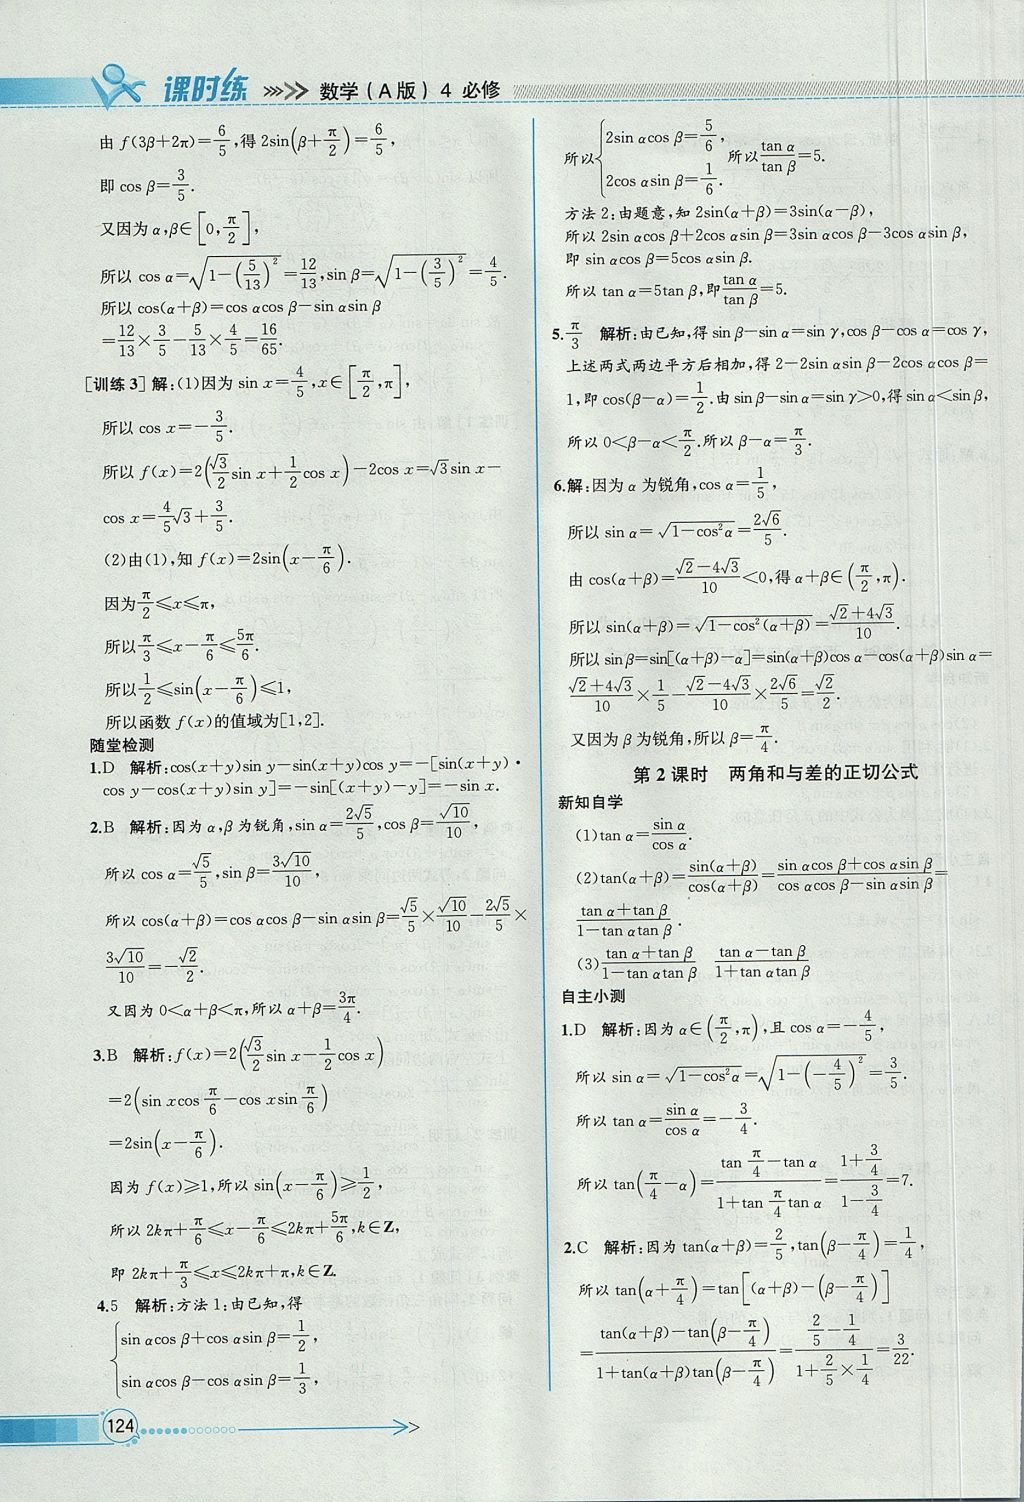 课时练 数学(A版) 4 必修
由 f(3β+2π)=6/5,得2sin(β+π/2)=6/5,
即 cos β=3/5.
又因为 α,β∈[0,π/2],
所以 cos α=√(1-(5/13)²)=12/13,sin β=√(1-(3/5)²)=4/5.
所以 cos(α+β)=cos αcos β-sin αsin β
=12/13×3/5-5/13×4/5=16/65.
[训练3] 解:(1)因为 sin x=4/5,x∈[π/2,π],
所以 cos x=-3/5.
所以 f(x)=2(√3/2 sin x+1/2 cos x)-2cos x=√3sin x-
cos x=4/5√3+3/5.
(2)由(1),知 f(x)=2sin(x-π/6).
因为π/2≤x≤π,
所以π/3≤x-π/6≤5π/6.
所以1/2≤sin(x-π/6)≤1,
所以函数 f(x)的值域为[1,2].
随堂检测
1.D 解析:cos(x+y)sin y-sin(x+y)cos y=-[sin(x+y)·
cos y-cos(x+y)sin y]=-sin[(x+y)-y]=-sin x.
2.B 解析:因为 α,β 为锐角,sin α=2√5/5,cos β=√10/10,
所以 cos α=√5/5,sin β=3√10/10,
所以 cos(α+β)=cos αcos β-sin αsin β=√5/5×√10/10-2√5/5×
3√10/10=-√2/2.
又因为 0<α+β<π,所以 α+β=3π/4.
3.B 解析:f(x)=2(√3/2 sin x-1/2 cos x)
=2(sin xcos π/6-cos xsin π/6)
=2sin(x-π/6).
因为 f(x)≥1,所以 sin(x-π/6)≥1/2,
所以 2kπ+π/6≤x-π/6≤2kπ+5π/6,k∈Z,
即 2kπ+π/3≤x≤2kπ+π,k∈Z.
4.5 解析:方法1:由已知,得
{sin αcos β+cos αsin β=1/2,
sin αcos β-cos αsin β=1/3,
所以{2sin αcos β=5/6,
2cos αsin β=1/6. 所以tan α/tan β=5.
方法2:由题意,知 2sin(α+β)=3sin(α-β),
所以 2sin αcos β+2cos αsin β=3sin αcos β-3cos αsin β,
即 sin αcos β=5cos αsin β.
所以 tan α=5tan β,即tan α/tan β=5.
5.π/3 解析:由已知,得 sin β-sin α=sin γ,cos β-cos α=cos γ,
上述两式两边平方后相加,得 2-2sin αsin β-2cos αcos β=
1,即 cos(β-α)=1/2.由 sin β-sin α=sin γ>0,得 sin α<sin β,
所以 0<β-α<π/2.所以 β-α=π/3.
6.解:因为 α 为锐角,cos α=1/5,
所以 sin α=√(1-cos²α)=2√6/5.
由 cos(α+β)=(√2-4√3)/10<0,得 α+β∈(π/2,π).
所以 sin(α+β)=√(1-cos²(α+β))=(√2+4√3)/10.
所以 sin β=sin[(α+β)-α]=sin(α+β)cos α-cos(α+β)sin α=
(√2+4√3)/10×1/5-(√2-4√3)/10×2√6/5=√2/2.
又因为 β 为锐角,所以 β=π/4.
第2课时 两角和与差的正切公式
新知自学
(1)tan α=sin α/cos α.
(2)tan(α+β)=sin(α+β)/cos(α+β)=(sin αcos β+cos αsin β)/(cos αcos β-sin αsin β)=
(tan α+tan β)/(1-tan αtan β).
(3)(tan α+tan β)/(1-tan αtan β) (tan α-tan β)/(1+tan αtan β)
自主小测
1.D 解析:因为 α∈(π/2,π),且 cos α=-4/5,
所以 sin α=√(1-cos²α)=√(1-(-4/5)²)=3/5.
所以 tan α=sin α/cos α=-3/4.
所以 tan(π/4-α)=(tan π/4-tan α)/(1+tan π/4 tan α)=(1+3/4)/(1-3/4)=7.
2.C 解析:因为 tan(α+β)=2/5,tan(β-π/4)=1/4,
所以 tan(α+π/4)=tan[(α+β)-(β-π/4)]
=(tan(α+β)-tan(β-π/4))/(1+tan(α+β)tan(β-π/4))=(2/5-1/4)/(1+2/5×1/4)=3/22.
124